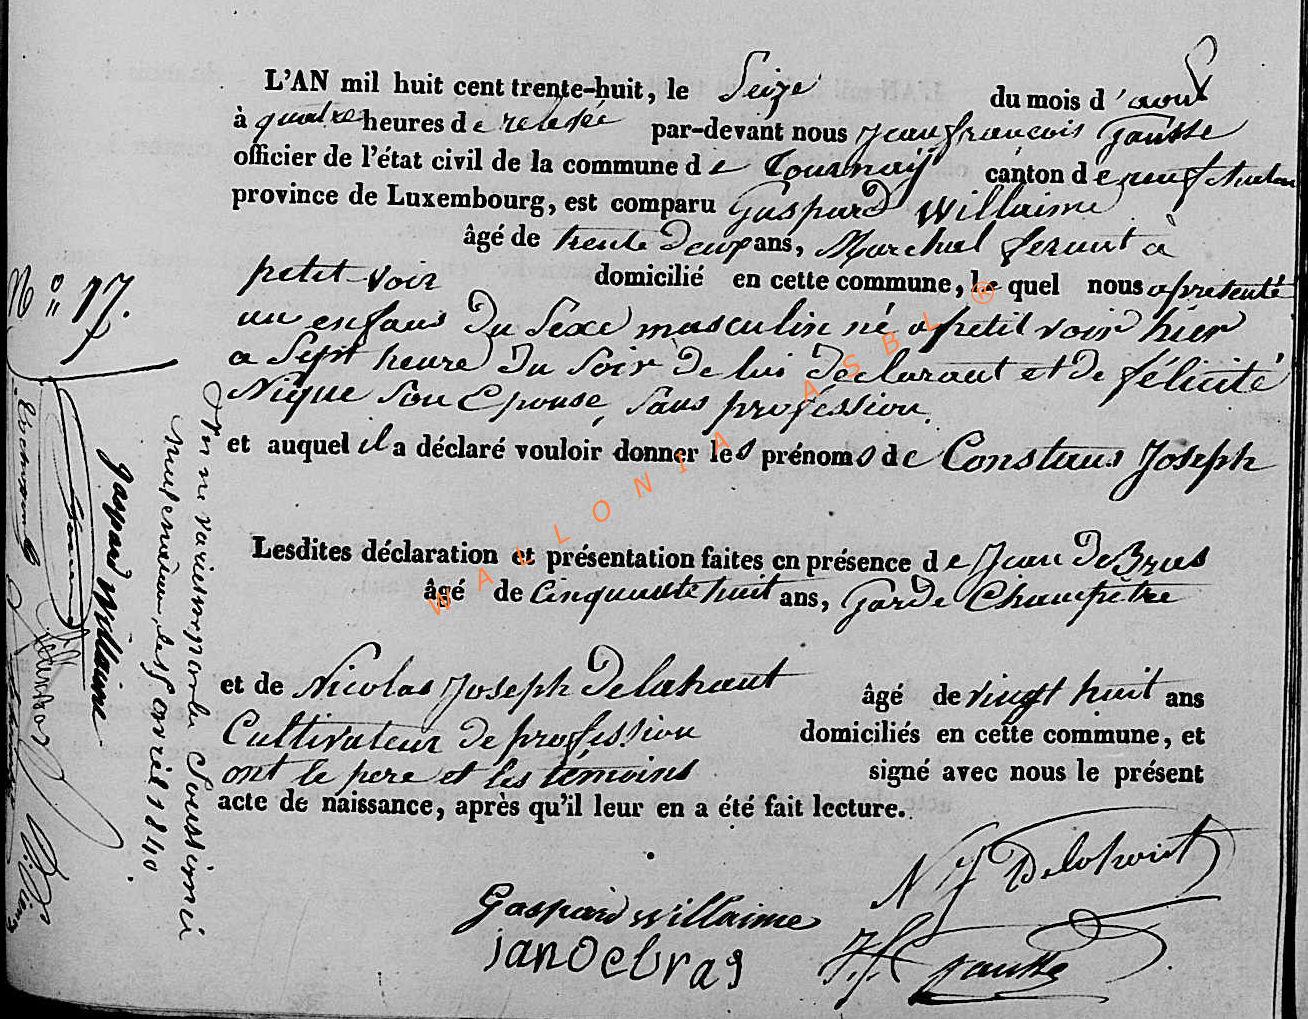 L'AN mil huit cent trente-huit, le Seize du mois d'aout
à quatre heures de relevée par-devant nous jean françois Gausse
officier de l'état civil de la commune de Tournay canton de neufchateau
province de Luxembourg, est comparu Gaspard Willaime
âgé de trente deux ans, Marchal ferant à
petit voir domicilié en cette commune, le quel nous apresenté
un enfans du Sexe masculin né a petit voir hier
a Sept heure du Soir de lui déclarant et de félicité
Nique Son Epouse, Sans profession.
et auquel il a déclaré vouloir donner les prénoms de Constans Joseph
Lesdites déclaration et présentation faites en présence de Jean DeBras
âgé de Cinquante huit ans, Garde Champêtre
et de Nicolas Joseph Delahaut âgé de vingt huit ans
Cultivateur de profession domiciliés en cette commune, et
ont le pere et les témoins signé avec nous le présent
acte de naissance, après qu'il leur en a été fait lecture.
N J Delahout
Gaspard Willaime
jan Debras
J.f. Gausse
N° 17.
ne varietur par le Soussigné
avril 1840.
Gaspard Willaime
WALLONIA ASBL ®